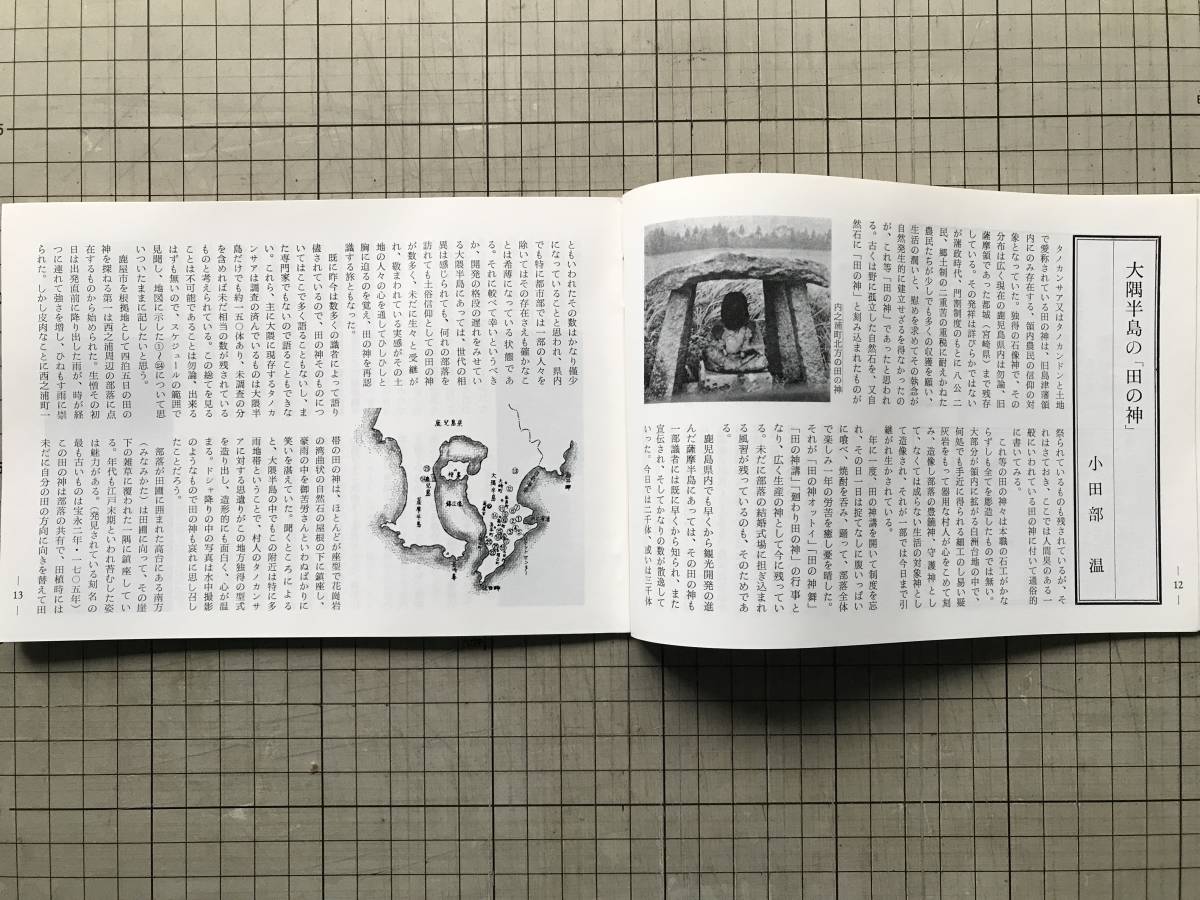 大隅半島の「田の神」
小田部 温
タノカンサァ又はタノカンドンと土地
で愛称されている田の神は、旧島津藩領
内にのみ存在する、領内農民の信仰の対
象となっていた。独得の石像神で、その
分布は広く現在の鹿児島県内は勿論、旧
薩摩領であった都城(宮崎県)まで残存
している。その発祥は詳びらかではない
が藩政時代、門割制度のもとに八公二
民、郷土制の二重苦の重税に耐えかねた
農民たちが少しでも多くの収獲を願い、
生活の潤いと、慰めを求めてその執念が
自然発生的に建立せざるを得なかったの
が、これ等「田の神」であったと思われ
る。古くは野に孤立した自然石を、又自
然石に「田の神」と刻み込まれたものが
内之浦町北方の田の神
祭られているものも残されているが、そ
れはさておき、ここでは人間臭のある一
般にいわれている田の神に付いて通俗的
に書いてみる。
これ等の田の神々は本職の石工がかな
らずしも全てを彫造したものでは無い。
大部分が領内に拡がる白洲台地の中で、
何処でも手近に得られる細工のし易い凝
灰岩をもって器用な村人が心をこめて刻
み、造像し部落の豊饒神、守護神とし
て、なくては成らない生活の対象神とし
て造像され、それが一部では今日まで引
継がれ生かされている。
年に一度、田の神講を開いて制度を忘
れ、その日一日は掟てなしに腹いっぱい
に喰べ、焼酎を呑み、踊って、部落全体
で楽しみ一年の労苦を癒し憂を晴した。
それが「田の神オットイ」「田の神舞」
「田の神講」「廻わり田の神」の行事と
なり、広く生産の神として今に残ってい
る。未だに部落の結婚式場に担ぎ込まれ
る風習が残っているのも、そのためであ
る。
鹿児島県内でも早くから観光開発の進
んだ薩摩半島にあっては、その田の神も
一部識者には既に早くから知られ、また
宣伝され、そしてかなりの数が散逸して
いった。今日では二千体、或いは三千体
12
ともいわれたその数はかなり僅少
になっていることと思われ、県内
でも特に都市部では一部の人々を
除いてはその存在さえも確かなこ
とは希薄になっている状態であ
る。それに較べて幸いというべき
か、開発の格段の遅れをみせてい
る大隅半島にあっては、世代の相
異は感じられても、何れの部落を
訪れても土俗信仰としての田の神
が数多く、未だに生々と受継が
れ、敬まわれている実感がその土
地の人々の心を通してひしひしと
胸に迫るのを覚え、田の神を再認
識する旅ともなった。
既に昨今は数多くの識者によって語り
儘されているので、田の神そのものにつ
いてはここで多く語ることもないし、ま
た専門家でもないので語ることもできな
い。これら、主に大隅に現存するタノカ
ンサァは調査の済んでいるものは大隅半
島だけでも約一五〇体あり、未調査の分
を含めれば未だ相当の数が残されている
ものと考えられている。この総てを見る
ことは不可能であることは勿論、出来る
はずも無いので、スケジュールの範囲で
見聞し、地図に示した①〜㉔について思
いついたままに記したいと思う。
鹿屋市を根拠地として四泊五日の田の
神を探ねる第一は西之浦周辺の部落に点
在するものから始められた。生憎その初
日は出発直前に降り出した雨が、時が経
つに連れて強さを増し、ひねもす雨に祟
られた。しかし皮肉なことに西之浦町一
鹿児島県
桜島
鹿児島
錦江湾
薩摩半島
大隅半島
佐田岬
帯の田の神は、ほとんどが座型で花崗岩
の湾曲状の自然石の屋根の下に鎮座し、
豪雨の中を御苦労さんといわぬばかりに
笑いを湛えていた。聞くところによる
と、大隅半島の中でもこの附近は特に多
雨地帯ということで、村人のタノカンサ
アに対する思い遣りがこの地方独得の型式
を造り出し、造形的にも面白く、心が温
まる。ドシャ降りの中の写真は水中撮影
のようなもので田の神も哀れに思し召し
たことだろう。
部落が田圃に囲まれた高台にある南方
(みなみかた)は田圃に向って、その崖
下の雑草に覆われた一隅に鎮座してい
る。年代も江戸末期といわれ苔むした姿
は魅力がある。(発見されている刻名の
最も古いものは宝永二年・一七〇五年)
この田の神は部落の共有で、田植時には
未だに自分の田の方向に向きを替えて田
13